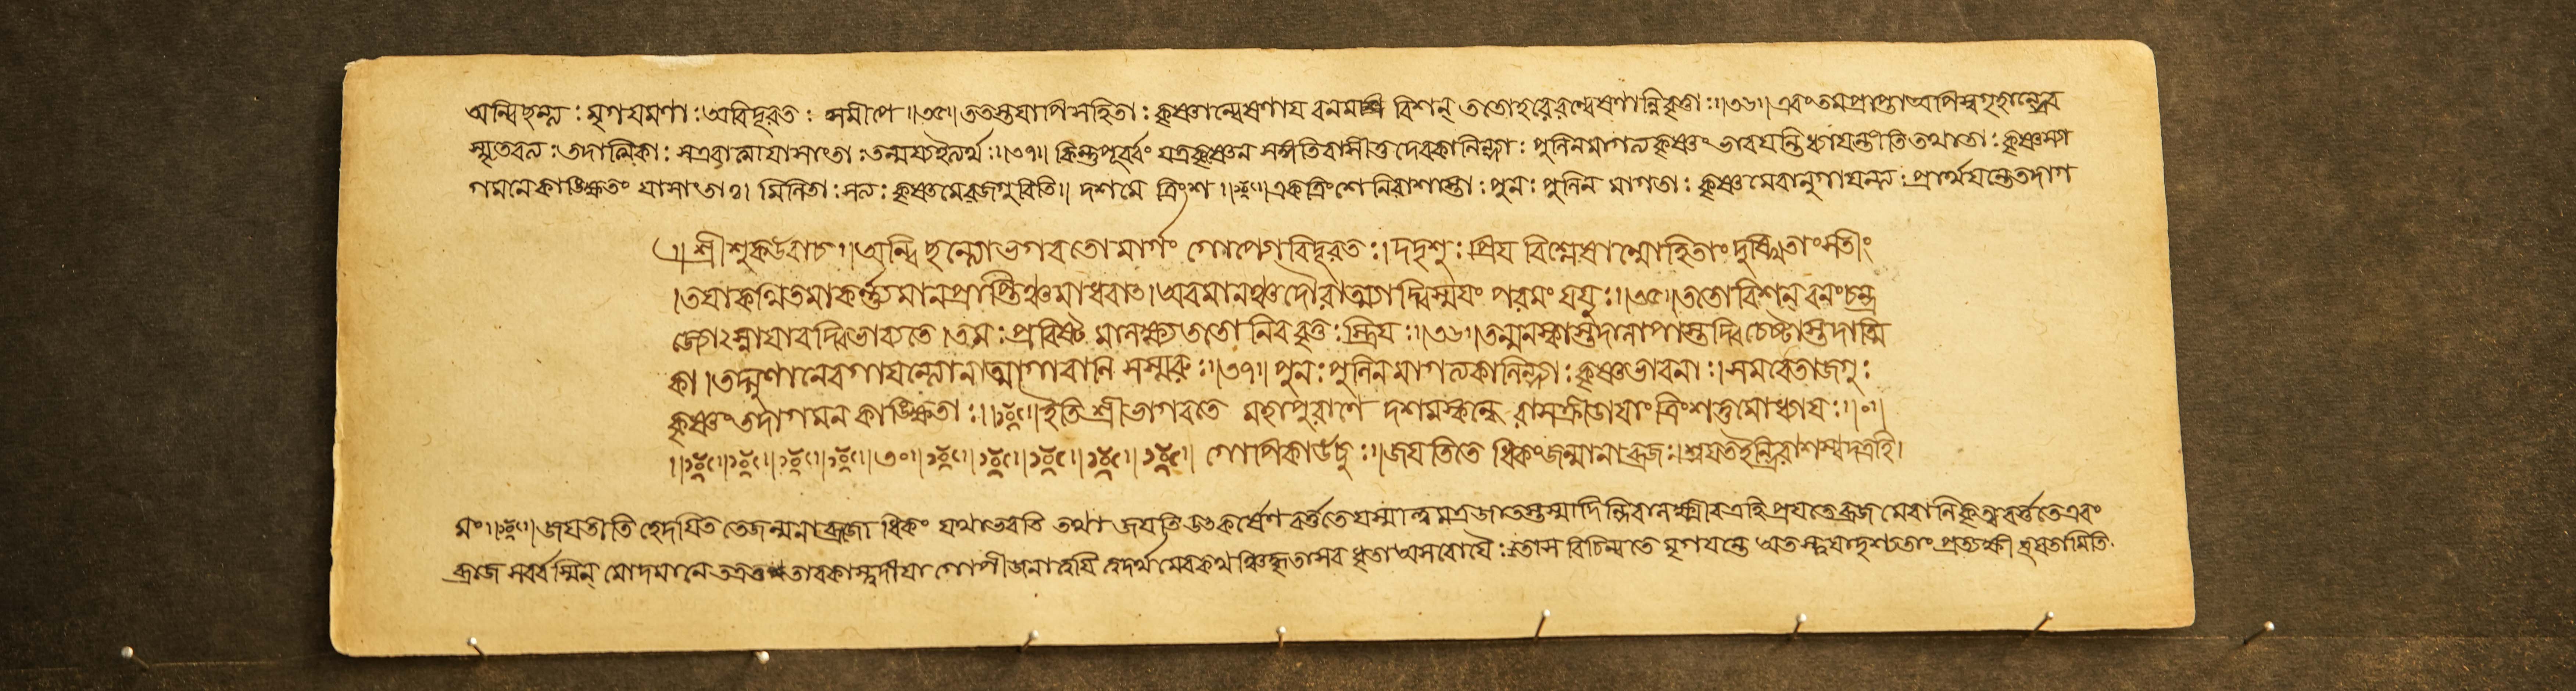 অন্বিছন্ত্যঃ মৃগযমাণাঃ অবিদূরতঃ সমীপে ॥৩৫॥ ততস্তযাপি সহিতাঃ কৃষ্ণান্বেষণায বনমা বিশন্ ততোহরেরন্বেষণান্নিবৃত্তাঃ ॥৩৬॥ এবং তমপ্রাপ্তা অপি স্বগৃহান্নৈব
স্মৃতবত্যঃ তদাত্মিকাঃ সএবাত্মা যাসাং তাঃ তন্ময্য ইত্যর্থঃ ॥৩৭॥ কিন্তু পূর্ব্বং যত্র কৃষ্ণেন সঙ্গতিরাসীত্তদেব কালিন্দ্যাঃ পুলিনমাগত্য কৃষ্ণং ভাবযন্তি ধ্যাযন্তীতি তথা তাঃ কৃষ্ণস্যা
গমনে কাঙ্ক্ষিতং যাসাং তাঃ। মিলিতাঃ সত্যঃ কৃষ্ণমেব জগুরিতি॥ দশমে ত্রিংশঃ ॥ একত্রিংশে নিরাশাস্তাঃ পুনঃ পুলিন মাগতাঃ কৃষ্ণমেবানুগাযন্ত্যঃ প্রার্থযন্তে তদাগ
॥ শ্রীশুকউবাচ ॥ অন্বিছন্ত্যো ভগবতো মার্গং গোপ্যোবিদূরতঃ। দদৃশুঃ প্রিয বিশ্লেষান্মোহিতাং দুঃখিতাং সখীং
। তযা কথিতমাকর্ণ্য মানপ্রাপ্তিঞ্চ মাধবাৎ। অবমানঞ্চ দৌরাত্ম্যাদ্বিস্মযং পরমং যযুঃ ॥৩৫॥ ততোবিশন্ বনং চন্দ্র
জ্যোৎস্না যাবদ্বিভাব্যতে। তমঃ প্রবিষ্ট মালক্ষ্য ততো নিববৃতুঃ স্ত্রিযঃ ॥৩৬॥ তন্মনস্কাস্তদালাপাস্তদ্বিচেষ্টাস্তদাত্মি
কাঃ। তদ্গুণানেব গাযন্ত্যো নাত্মাগারাণি সস্মরুঃ ॥৩৭॥ পুনঃ পুলিনমাগত্য কালিন্দ্যাঃ কৃষ্ণভাবনাঃ। সমবেতা জগুঃ
কৃষ্ণং তদাগমন কাঙ্ক্ষিতাঃ ॥ ইতি শ্রীভাগবতে মহাপুরাণে দশমস্কন্ধে রাসক্রীডাযাং ত্রিংশত্তমোধ্যাযঃ ॥০॥
॥৩০॥ গোপিকা ঊচুঃ ॥ জযতি তেধিকং জন্মনা ব্রজঃ। শ্রযত ইন্দিরা শশ্বদত্র হি।
মং ॥ জযতীতি হে দযিত তে জন্মনা ব্রজোধিকং যথা ভবতি তথা জযতি উৎকর্ষেণ বর্ত্ততে যস্মাত্ত্বমত্র জাতস্তস্মাদিন্দিরা লক্ষ্মীরত্র হি শ্রযতে ব্রজমেবালংকৃত্য বর্ত্ততে এবং
ব্রজে সর্ব্বস্মিন্ মোদমানে অত্র তু তাবকাস্ত্বদীযা গোপীজনাস্ত্বযি ত্বদর্থমেব কথঞ্চিদ্ধৃতাসব ধৃতা অসবো যৈঃ তাস্ত্বাং বিচিন্বতে মৃগযন্তে অতস্ত্বযা দৃশ্যতাং প্রত্যক্ষী ভূযতামিতি